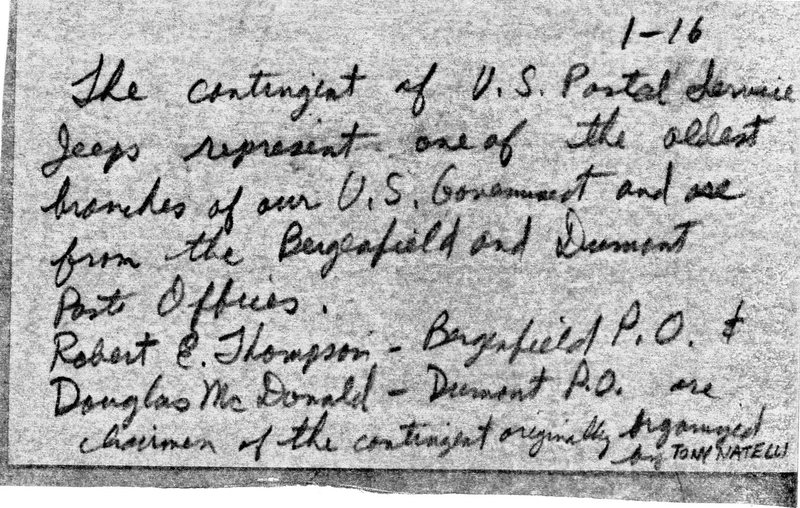 1-16
The contingent of U.S. Postal Service
Jeeps represent one of the oldest
branches of our U.S. Government and are
from the Bergenfield and Dumont
Post Offices.
Robert E. Thompson - Bergenfield P.O. &
Douglas Mc Donald - Dumont P.O. are
chairmen of the contingent originally organized
by TONY NATELLI